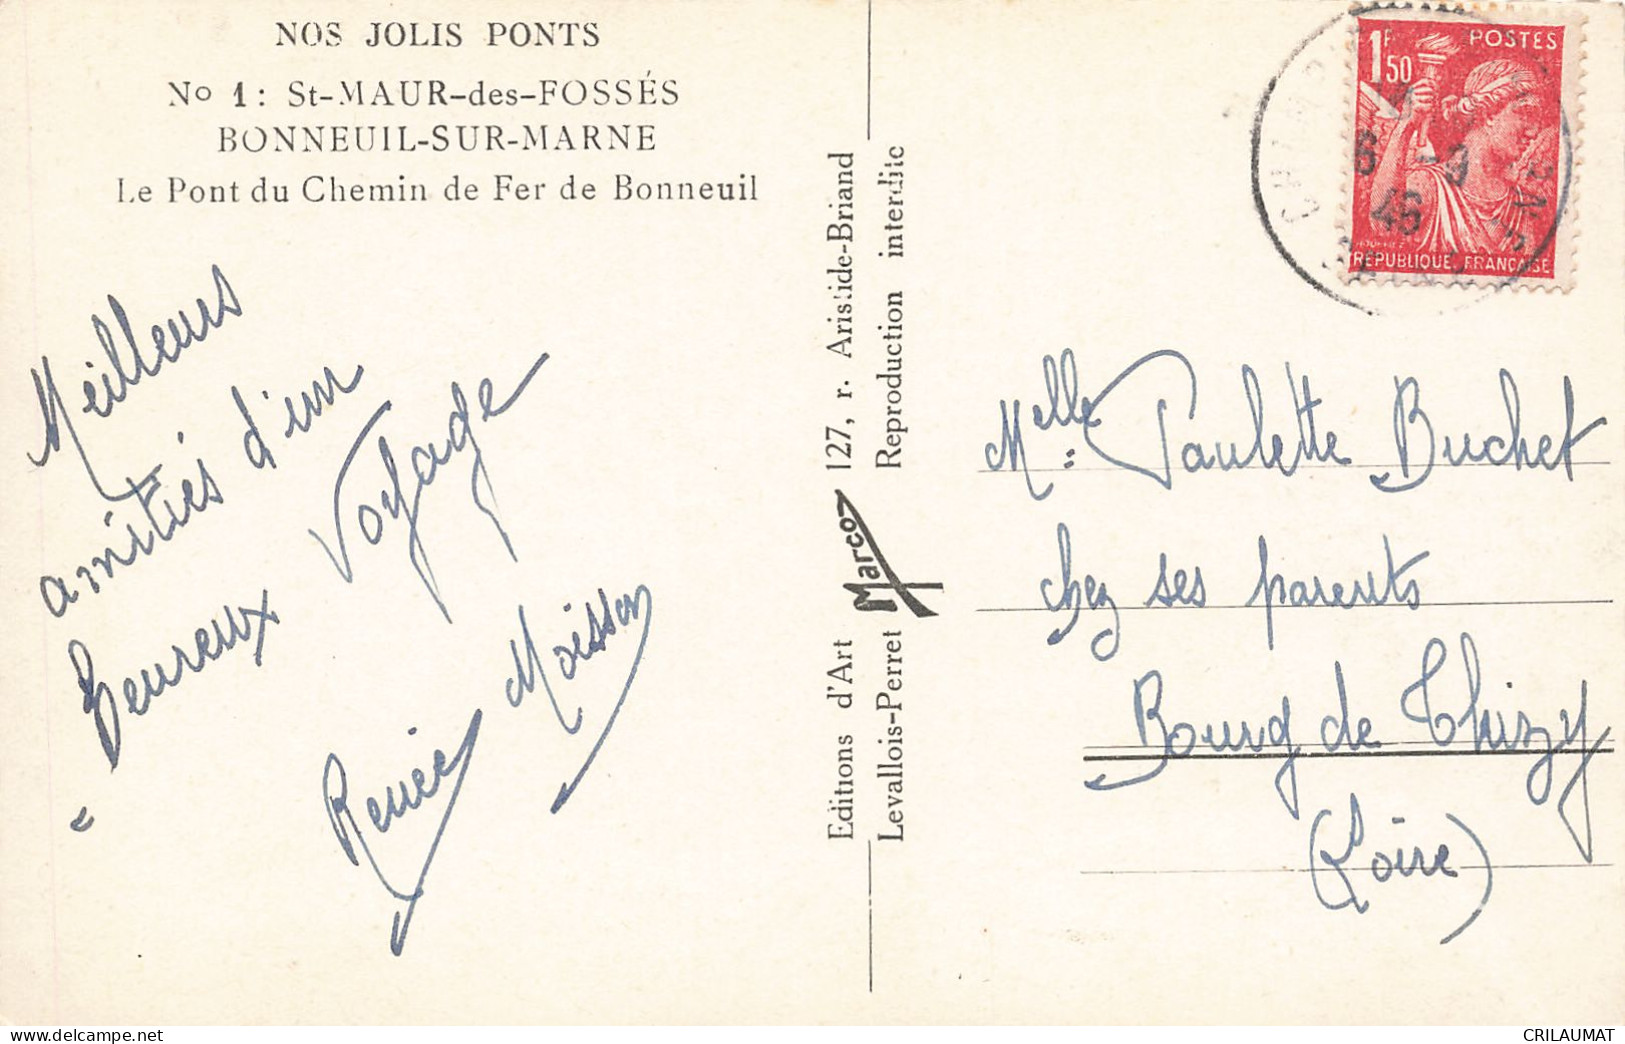 NOS JOLIS PONTS
No 1 : St-MAUR-des-FOSSÉS
BONNEUIL-SUR-MARNE
Le Pont du Chemin de Fer de Bonneuil
Meilleurs
amitiés d'un
heureux Voyage
Renée Moisson
Editions d'Art Marco 127, r. Aristide-Briand
Levallois-Perret Reproduction interdite
1F50 POSTES
RÉPUBLIQUE FRANÇAISE
6 -9
46
Melle Paulette Buchet
chez ses parents
Bourg de Thizy
(Loire)
www.delcampe.net
CRILAUMAT